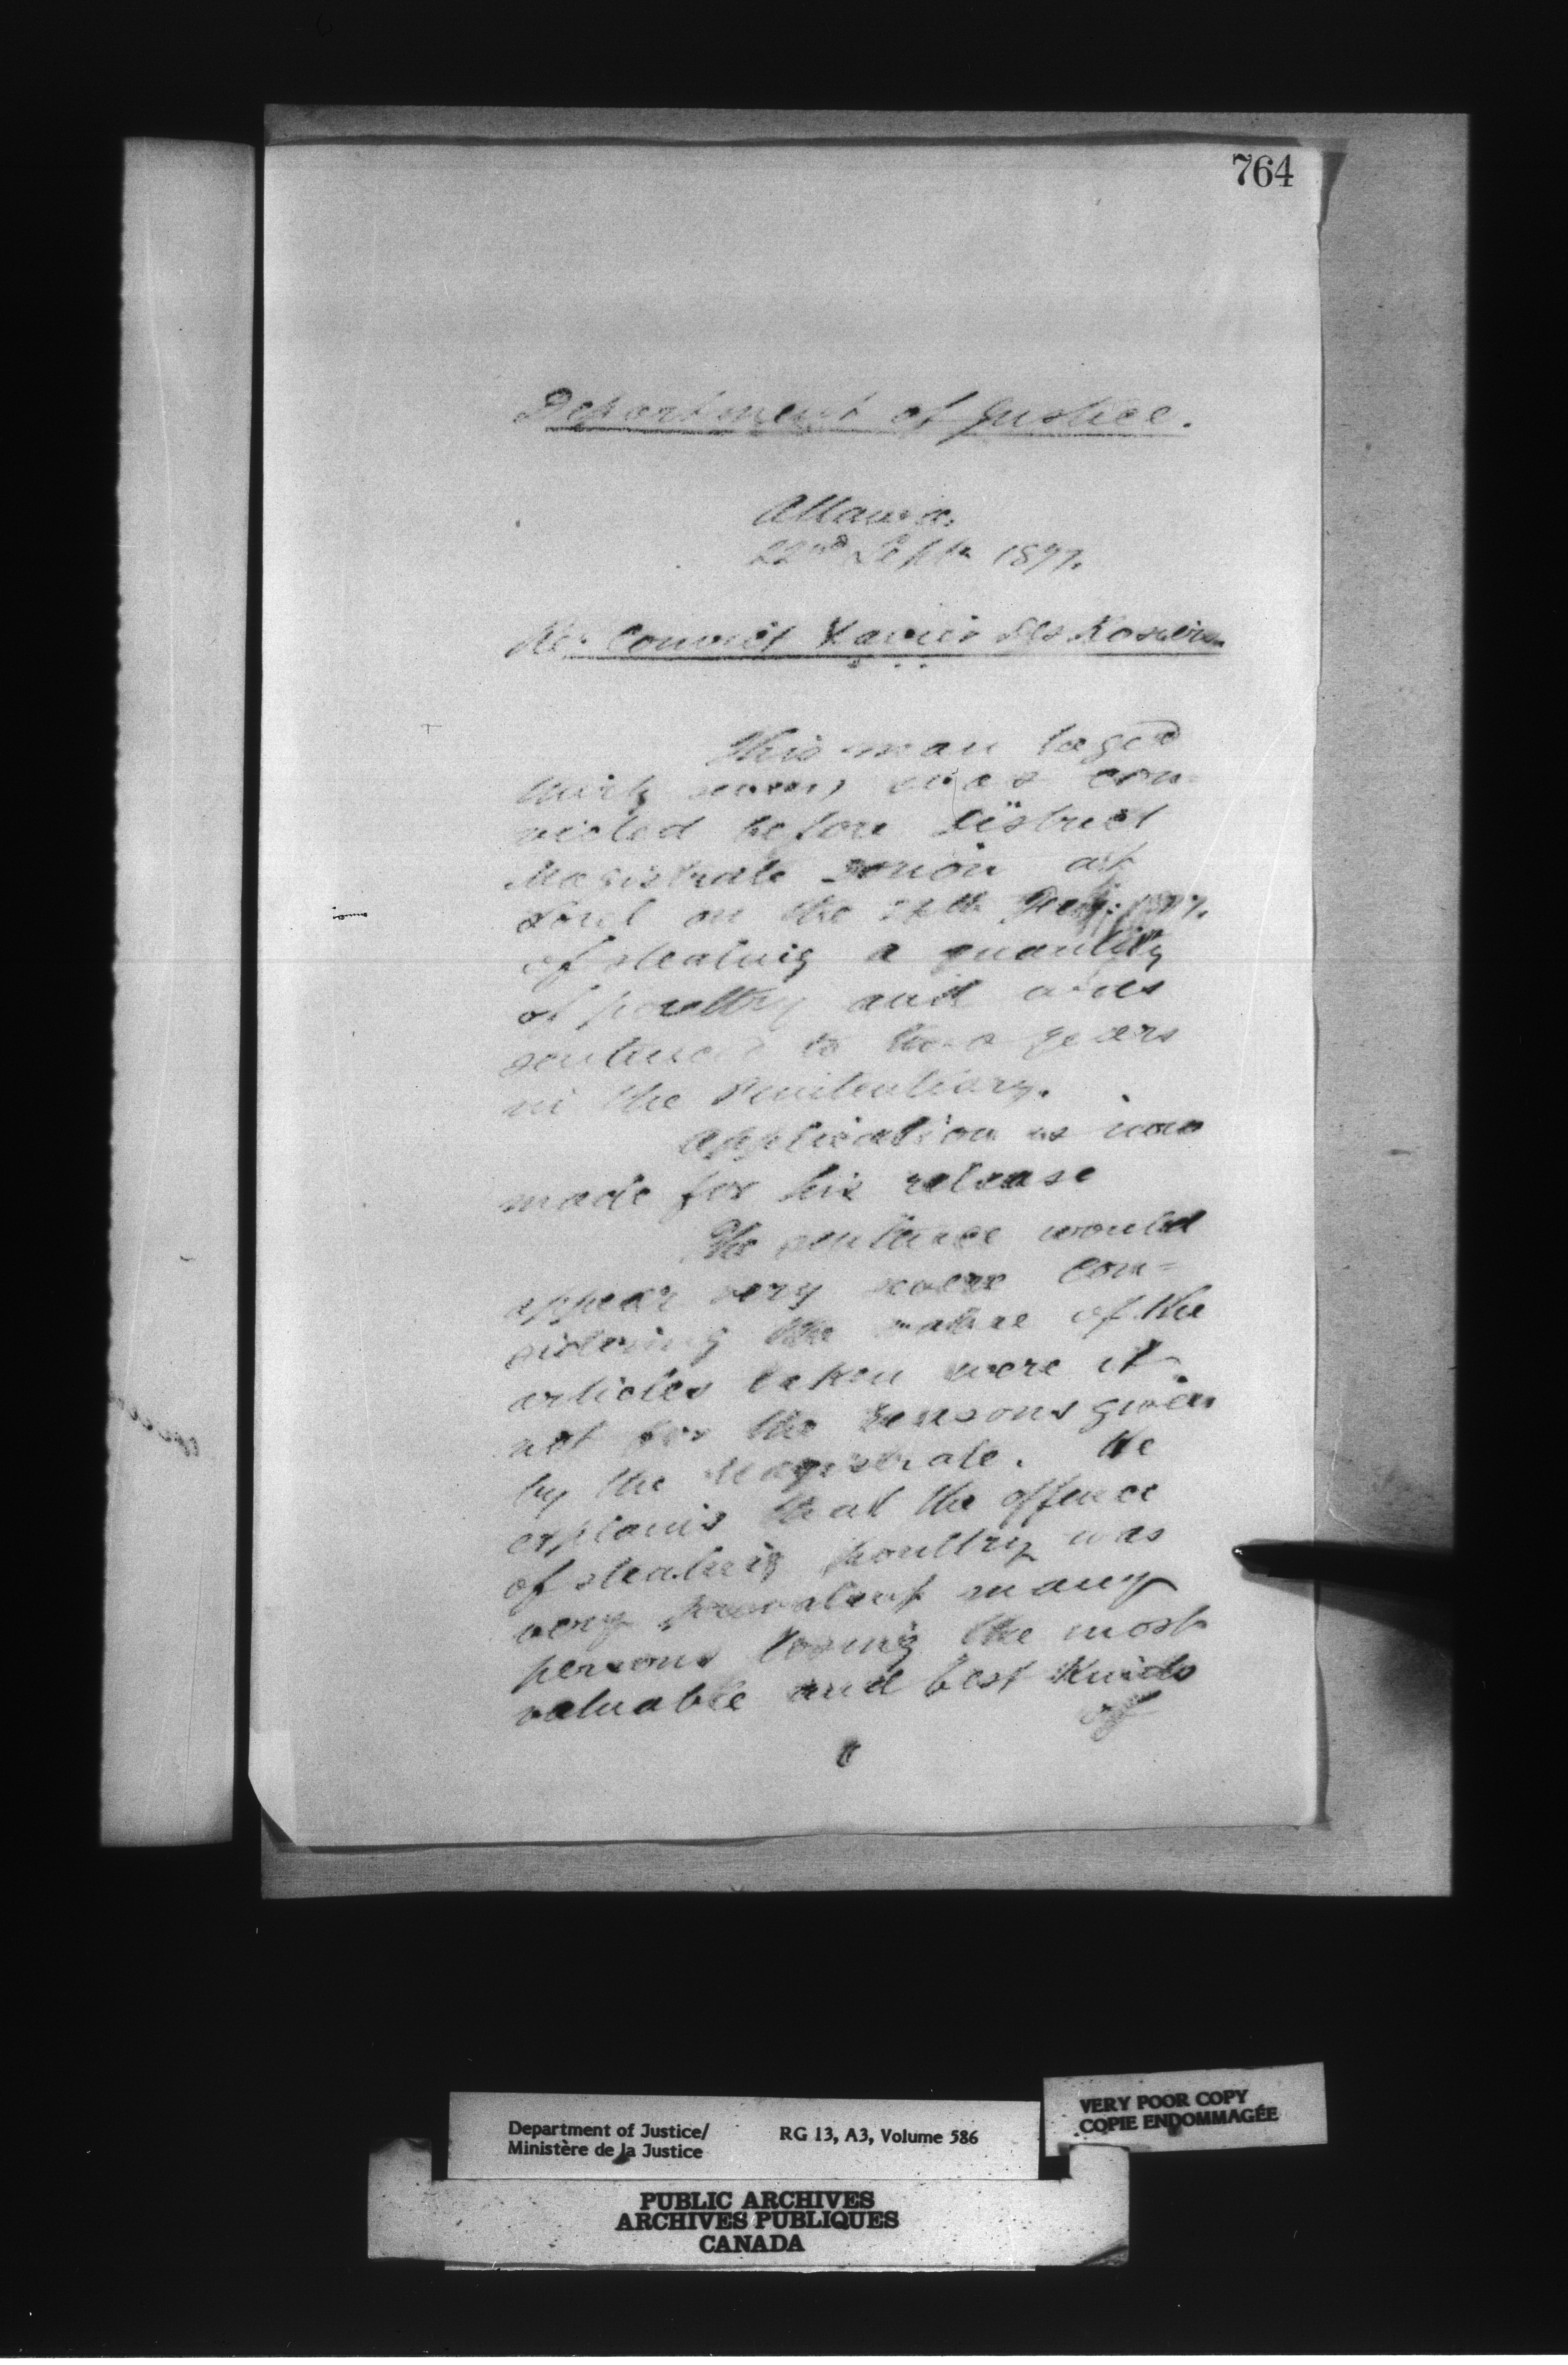 764
Department of Justice.
Ottawa.
22nd Septr 1897.
Re: Convict Xavier
This man (aged
thirty seven) was con-
victed before District
Magistrate Dorion at
Sorel on the 1897.
of stealing a quantity
of poultry and was
sentenced to two years
in the Penitentiary.
Application is now
made for his release
The sentence would
appear very severe con=
sidering the nature of the
articles taken were it
not for the reasons given
by the Magistrate. He
explains that the offence
of stealing poultry was
very prevalent many
persons losing the most
valuable and best kinds
of
Department of Justice/
Ministère de la Justice
RG 13, A3, Volume 586
VERY POOR COPY
COPIE ENDOMMAGÉE
PUBLIC ARCHIVES
ARCHIVES PUBLIQUES
CANADA